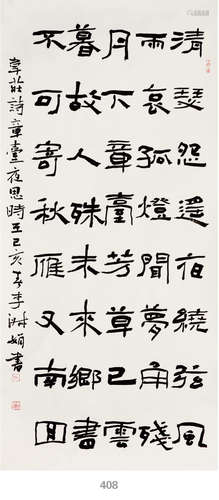 清瑟怨遥夜繞弦風
雨哀孤燈聞夢角殘
月下章臺芳草已雲
暮故人殊未來鄉書
不可寄秋雁又南回
韋莊詩章臺夜思時在己亥李淑娟書
408